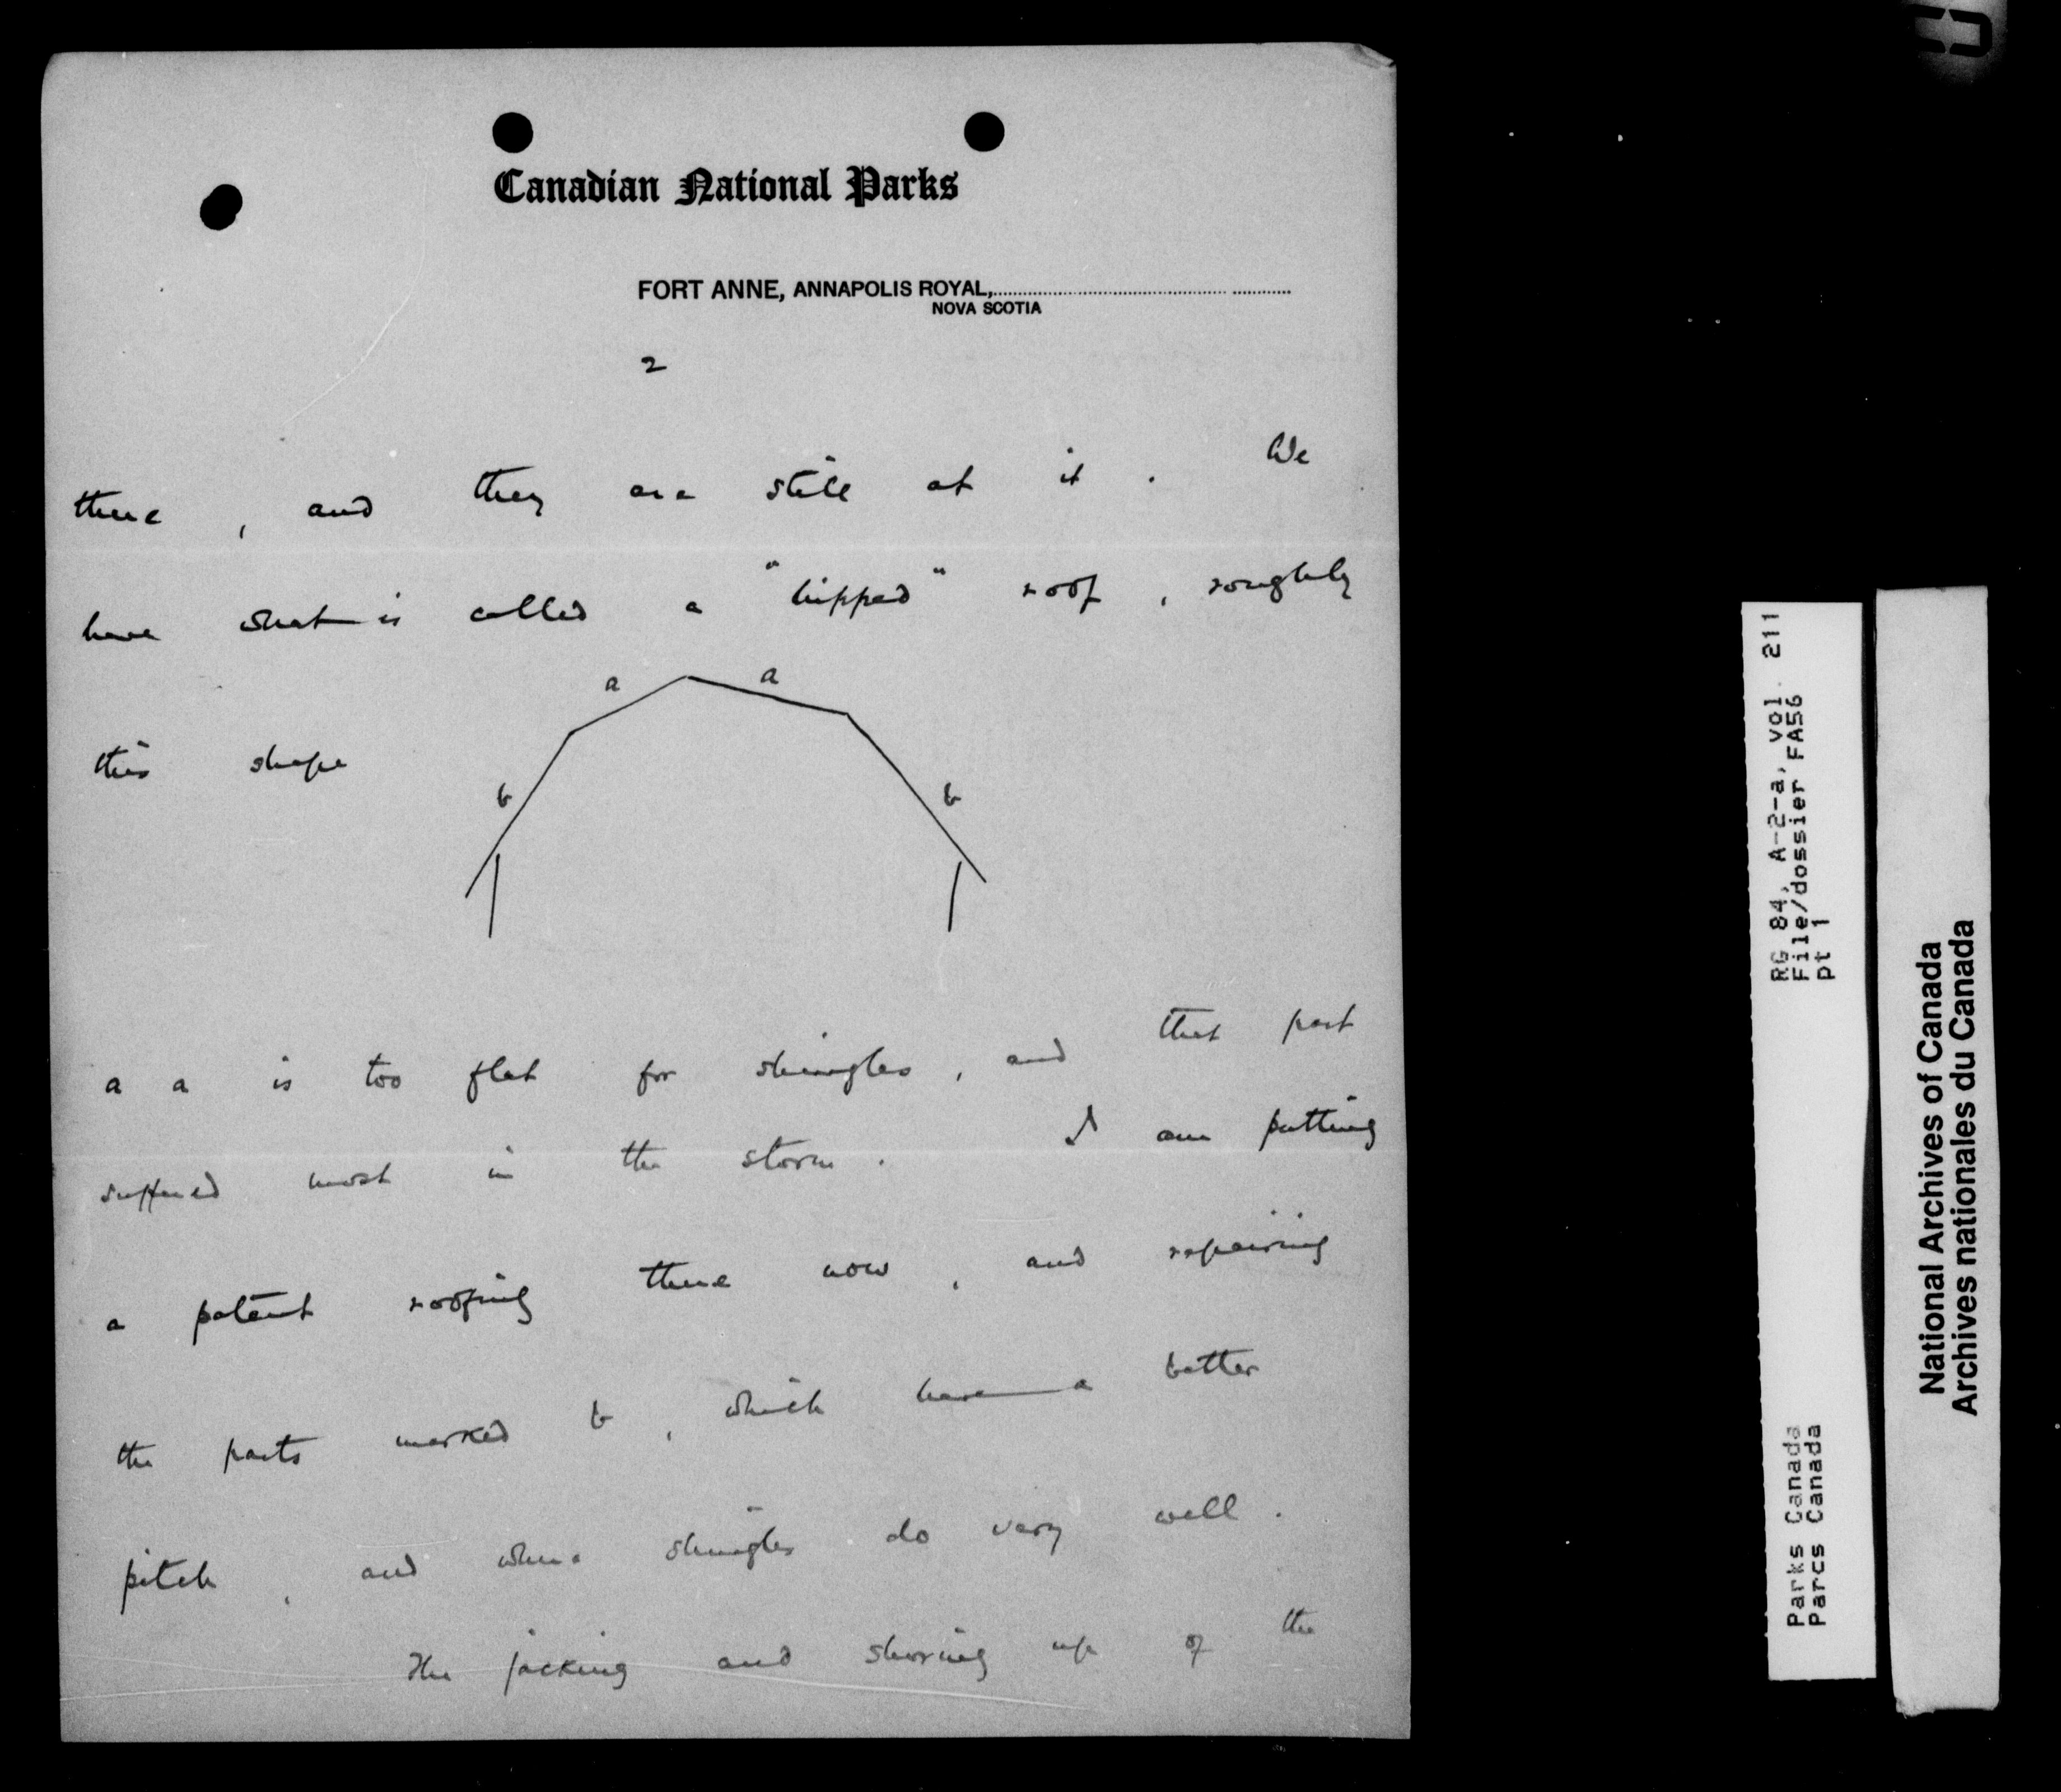 Canadian National Parks
FORT ANNE, ANNAPOLIS ROYAL,
NOVA SCOTIA
2
there, and they are still at it. We
have what is called a "hipped" roof, roughly
a a
this shape
b b
a a is too flat for shingles, and that part
suffered most in the storm. I am putting
a patent roofing there now, and repairing
the parts marked b, which have a better
pitch, and where shingles do very well.
The jacking and shoring up of the
RG 84, A-2-a, vol. 211
File/dossier FA56
pt 1
Parks Canada
Parcs Canada
National Archives of Canada
Archives nationales du Canada